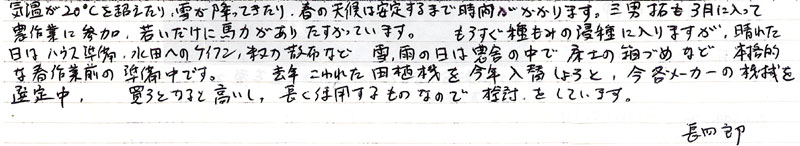 気温が20℃を超えたり、雪が降ってきたり、春の天候は安定するまで時間がかかります。三男 拓も3月に入って
農作業に参加、若いだけに馬力がありたすかっています。 もうすぐ種もみの浸種に入りますが、晴れた
日はハウス準備、水田へのケイフン、散布など 雪、雨の日は農舎の中で床土の箱づめなど 本格的
な春作業前の準備中です。 去年こわれた田植機を今年入替しようと、今各メーカーの機械を
選定中、 買うとなると高いし、長く使用するものなので 検討をしています。
長四郎